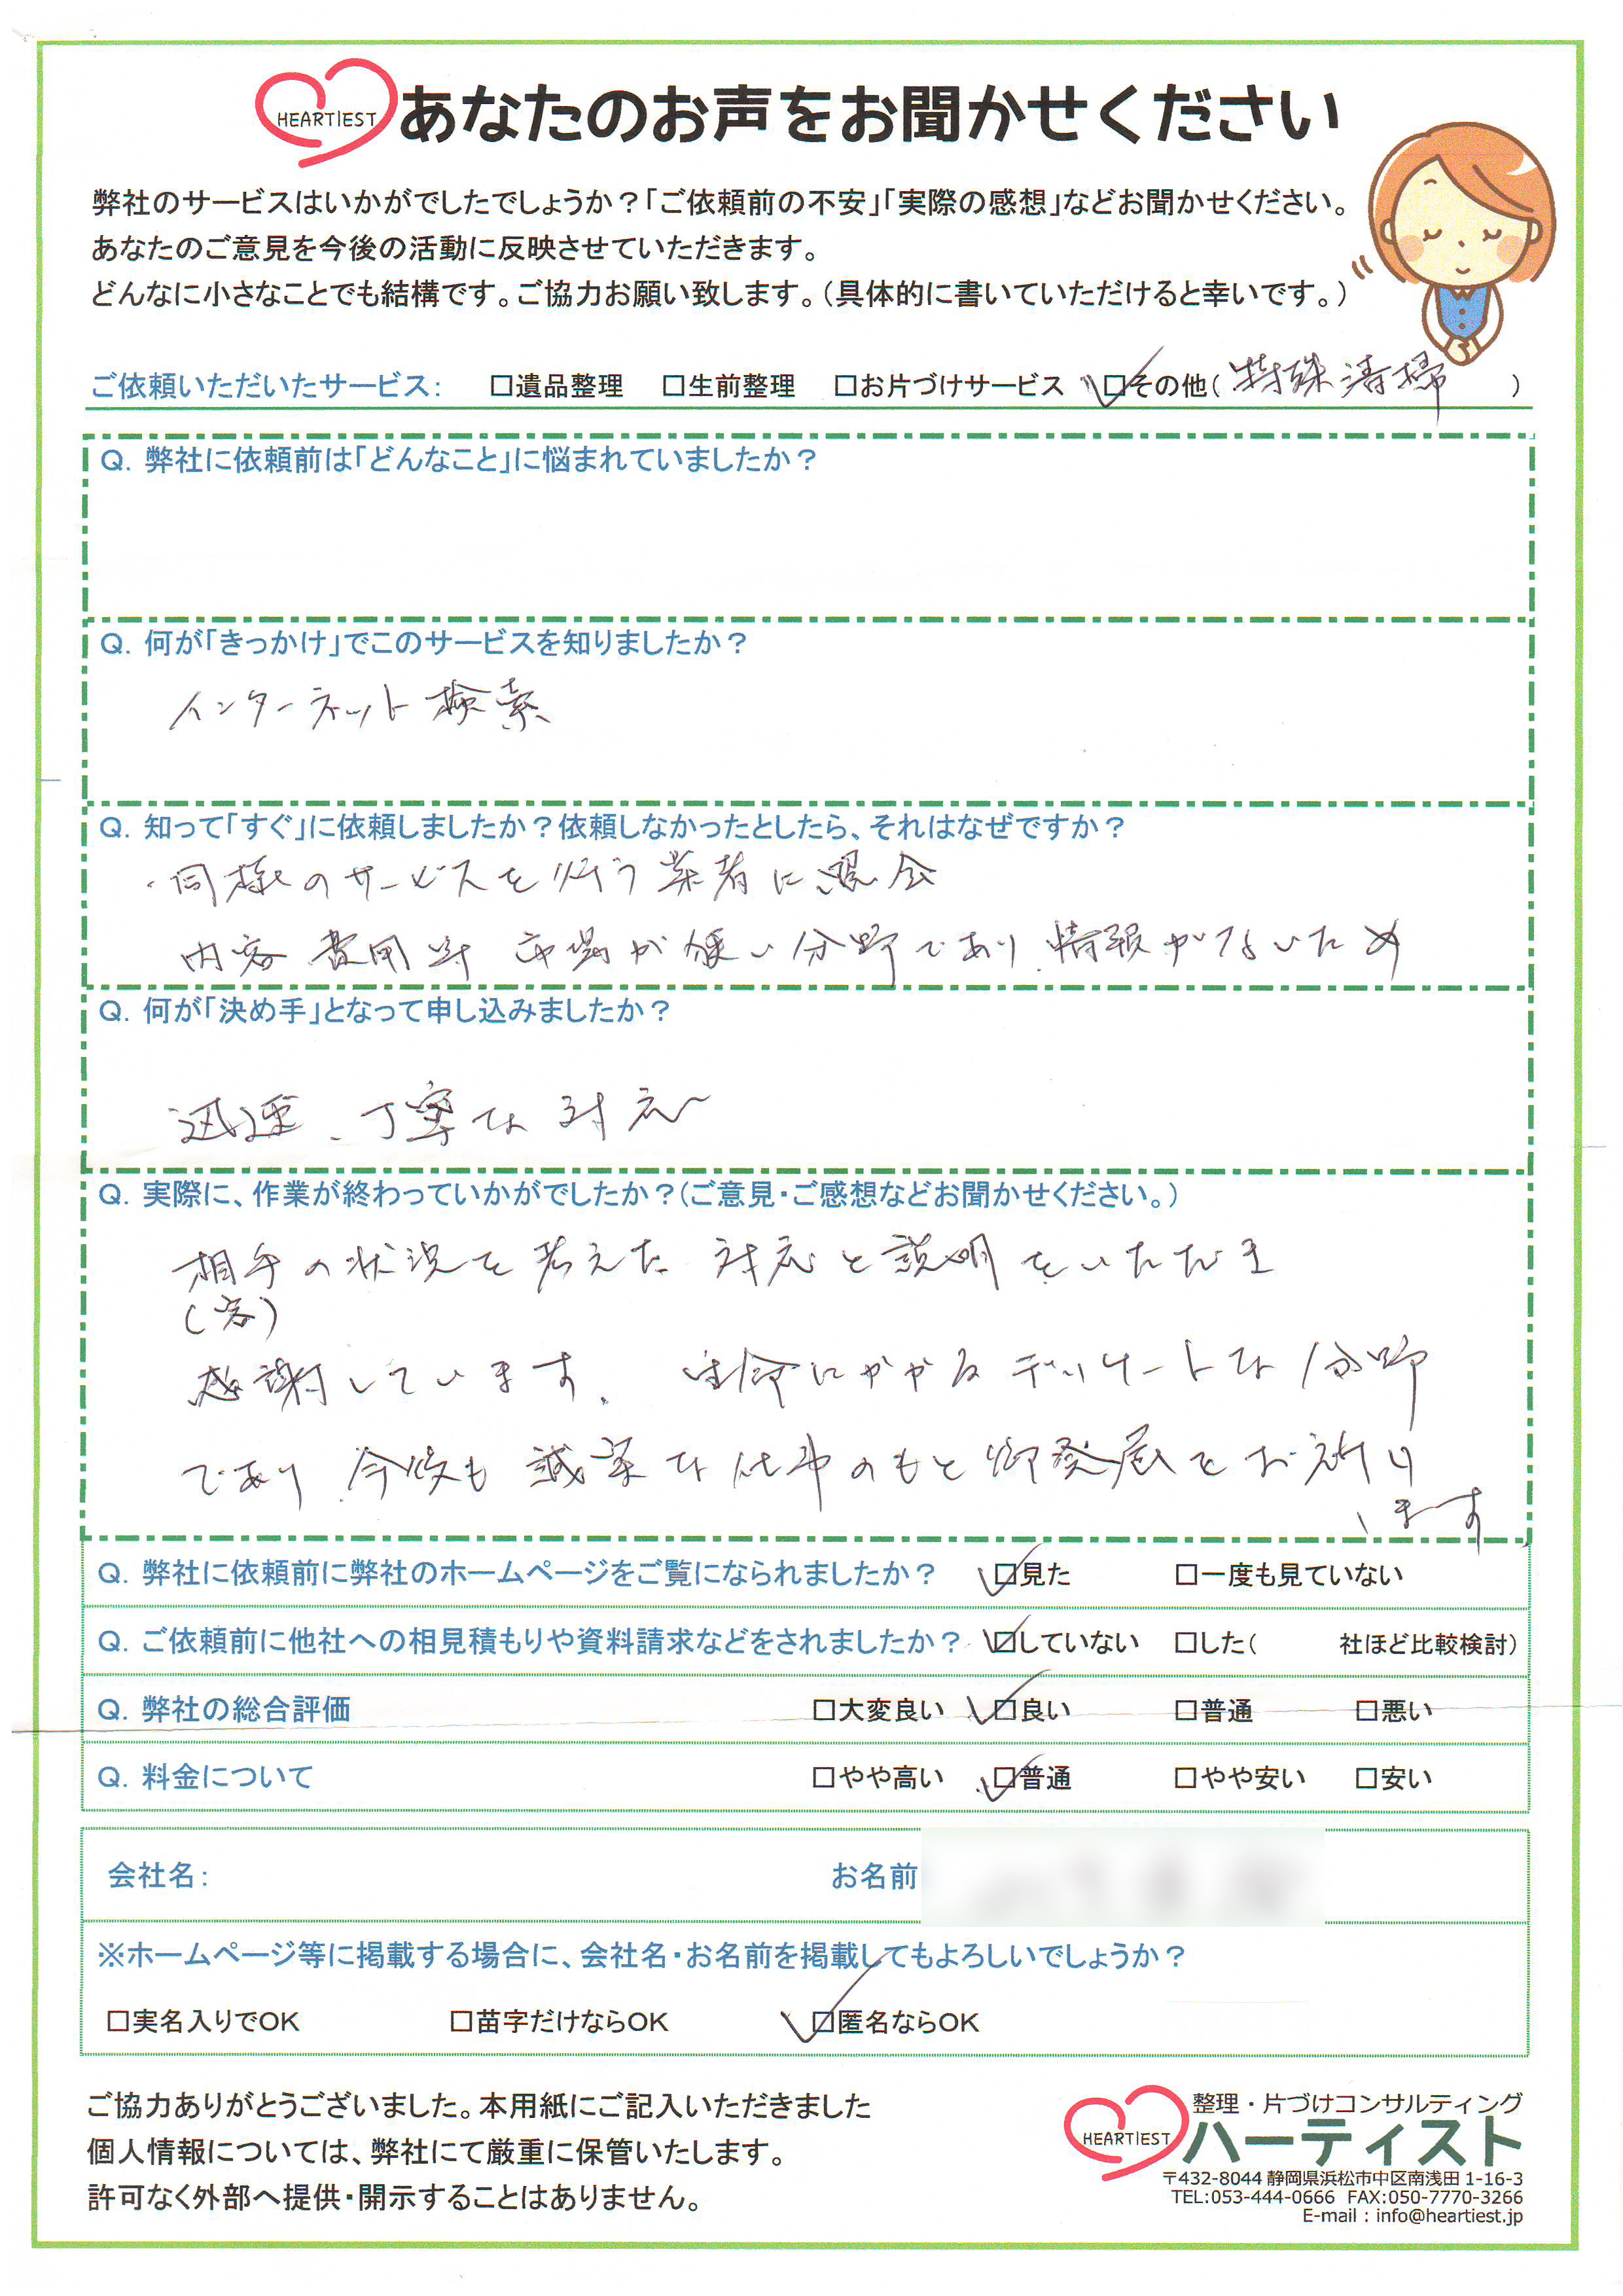 HEARTIEST あなたのお声をお聞かせください
弊社のサービスはいかがでしたでしょうか？「ご依頼前の不安」「実際の感想」などお聞かせください。
あなたのご意見を今後の活動に反映させていただきます。
どんなに小さなことでも結構です。ご協力お願い致します。（具体的に書いていただけると幸いです。）
ご依頼いただいたサービス： □遺品整理 □生前整理 □お片づけサービス ☑その他（特殊清掃）
Q. 弊社に依頼前は「どんなこと」に悩まれていましたか？
Q. 何が「きっかけ」でこのサービスを知りましたか？
インターネット検索
Q. 知って「すぐ」に依頼しましたか？依頼しなかったとしたら、それはなぜですか？
・同様のサービスを行う業者に照会
内容 費用等 市場が狭い分野であり、情報がないため
Q. 何が「決め手」となって申し込みましたか？
迅速、丁寧な対応
Q. 実際に、作業が終わっていかがでしたか？（ご意見・ご感想などお聞かせください。）
相手の状況を考えた 対応と説明をいただき
（客）
感謝しています。 生命にかかるデリケートな分野
であり 今後も誠実な仕事のもと御発展をお祈り
います
Q. 弊社に依頼前に弊社のホームページをご覧になられましたか？ ☑見た □一度も見ていない
Q. ご依頼前に他社への相見積もりや資料請求などをされましたか？ ☑していない □した（ 社ほど比較検討）
Q. 弊社の総合評価 □大変良い ☑良い □普通 □悪い
Q. 料金について □やや高い ☑普通 □やや安い □安い
会社名： お名前
※ホームページ等に掲載する場合に、会社名・お名前を掲載してもよろしいでしょうか？
□実名入りでOK □苗字だけならOK ☑匿名ならOK
ご協力ありがとうございました。本用紙にご記入いただきました
個人情報については、弊社にて厳重に保管いたします。
許可なく外部へ提供・開示することはありません。
整理・片づけコンサルティング
HEARTIEST ハーティスト
〒432-8044 静岡県浜松市中区南浅田 1-16-3
TEL:053-444-0666 FAX:050-7770-3266
E-mail : info@heartiest.jp